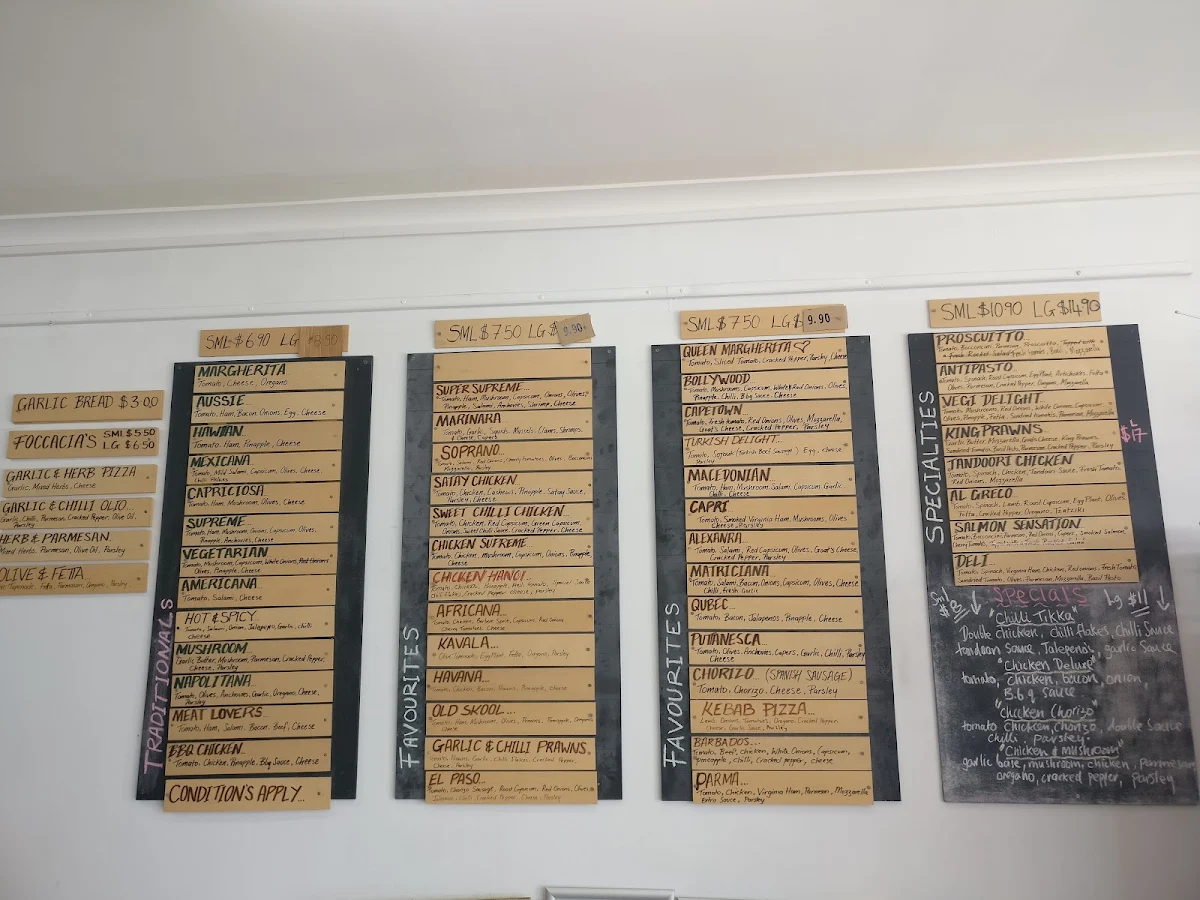 GARLIC BREAD $3.00
FOCCACIA'S SML $5.50
LG $6.50
GARLIC & HERB PIZZA
Garlic, Mixed Herbs, Cheese
GARLIC & CHILLI OLIO...
Garlic, Chilli, Parmesan, Cracked Pepper, Olive Oil,
Parsley
HERB & PARMESAN
Mixed Herbs, Parmesan, Olive Oil, Parsley
OLIVE & FETTA
Tapenade, Fetta, Parmesan, Oregano, Parsley
SML $6.90 LG 8.90
TRADITIONALS
MARGHERITA
Tomato, Cheese, Oregano
AUSSIE
Tomato, Ham, Bacon, Onions, Egg, Cheese
HAWIIAN
Tomato, Ham, Pineapple, Cheese
MEXICANA
Tomato, Mild Salami, Capsicum, Olives, Cheese,
CAPRICIOSA
Tomato, Ham, Mushroom, Olives, Cheese
SUPREME...
Tomato, Ham, Mushroom, Onions, Capsicum, Olives,
Pineapple, Anchovies, Cheese
VEGETARIAN
Tomato, Mushrooms, Capsicum, White Onions, Red Onions,
Olives, Pineapple, Cheese
AMERICANA
Tomato, Salami, Cheese
HOT & SPICY
Tomato, Salami, Onion, Jalapeno, Garlic, Chilli
Cheese
MUSHROOM
Garlic Butter, Mushroom, Parmesan, Cracked Pepper,
Cheese, Parsley
NAPOLITANA
Tomato, Olives, Anchovies, Garlic, Oregano, Cheese,
Parsley
MEAT LOVERS
Tomato, Ham, Salami, Bacon, Beef, Cheese
BBQ CHICKEN
Tomato, Chicken, Pineapple, Bbq Sauce, Cheese
CONDITION'S APPLY...
SML $7.50 LG $ 9.90
FAVOURITES
SUPER SUPREME...
Tomato, Ham, Mushrooms, Capsicum, Onions, Olives,
Pineapple, Salami, Anchovies, Shrimp, Cheese
MARINARA
Tomato, Garlic, Squids, Mussels, Clams, Shrimps,
SOPRANO...
SATAY CHICKEN
Tomato, Chicken, Cashews, Pineapple, Satay Sauce,
Parsley, Cheese
SWEET CHILLI CHICKEN...
Tomato, Chicken, Red Capsicum, Green Capsicum,
Onions, Sweet Chilli Sauce, Cracked Pepper, Cheese
CHICKEN SUPREME
Tomato, Chicken, Mushroom, Capsicum, Onions, Pineapple,
Cheese
CHICKEN HANOI...
AFRICANA...
KAVALA...
HAVANA...
Tomato, Chicken, Bacon, Banana, Pineapple, Cheese
OLD SKOOL...
GARLIC & CHILLI PRAWNS
EL PASO...
Tomato, Chorizo Sausage, Roast Capsicum, Red Onions, Olives,
SML $7.50 LG $ 9.90
FAVOURITES
QUEEN MARGHERITA
Tomato, Sliced Tomato, Cracked Pepper, Parsley, Cheese
BOLLYWOOD
Tomato, Mushrooms, Capsicum, White & Red Onions, Olives,
Pineapple, Chilli, Bbq Sauce, Cheese
CAPETOWN
Tomato, Fresh Tomato, Red Onions, Olives, Mozzarella,
Goat's Cheese, Cracked Pepper, Parsley
TURKISH DELIGHT...
Tomato, Sojouk (Turkish Beef Sausage), Egg, Cheese
Parsley
MACEDONIAN
Tomato, Ham, Mushroom, Salami, Capsicum, Garlic
Chilli, Cheese
CAPRI
Tomato, Smoked Virginia Ham, Mushroom, Olives
Cheese, Parsley
ALEXANRA...
Tomato, Salami, Red Capsicum, Olives, Goat's Cheese,
Cracked Pepper, Parsley
MATRICIANA
Tomato, Salami, Bacon, Onions, Capsicum, Olives, Cheese
Chilli, Fresh Garlic
QUBEC...
Tomato, Bacon, Jalapenos, Pineapple, Cheese
PUTTANESCA
Tomato, Olives, Anchovies, Capers, Garlic, Chilli, Parsley
Cheese
CHORIZO... (SPANISH SAUSAGE)
Tomato, Chorizo, Cheese, Parsley
KEBAB PIZZA...
Lamb, Onions, Tomatoes, Oregano, Cracked Pepper,
Cheese, Garlic Sauce, Parsley
BARBADOS...
Tomato, Beef, Chicken, White Onions, Capsicum,
Pineapple, Chilli, Cracked Pepper, Cheese
PARMA...
Tomato, Chicken, Virginia Ham, Parmesan, Mozzarella
Extra Sauce, Parsley
SML $10.90 LG $14.90
SPECIALTIES
PROSCUITTO
Tomato, Bocconcini, Parmesan, Proscuitto, Topped with
ANTIPASTO
Tomato, Spinach, Roast Capsicum, Egg Plant, Artichokes, Fetta
Olives, Parmesan, Cracked Pepper, Oregano, Mozzarella
VEGI DELIGHT
Tomato, Mushrooms, Red Onions, White Onions, Capsicum
Olives, Pineapple, Fetta, Sundried Tomatoes, Parmesan, Mozzarella
KING PRAWNS $17
Garlic Butter, Mozzarella, Goats Cheese, King Prawns,
TANDOORI CHICKEN
Tomato, Spinach, Chicken, Tandoori Sauce, Fresh Tomato,
Red Onions, Mozzarella
AL GRECO
Tomato, Spinach, Lamb, Roast Capsicum, Egg Plant, Olives
Fetta, Cracked Pepper, Oregano, Tzatziki
SALMON SENSATION
DELI
Tomato, Spinach, Virginia Ham, Chicken, Red Onions, Fresh Tomato
Sundried Tomato, Olives, Parmesan, Mozzarella, Basil Pesto
Specials
Sml Lg $11
"Chilli Tikka"
Double chicken, chilli flakes, chilli sauce
tandoori Sauce, Jalepenos, garlic Sauce
"Chicken Deluxe"
tomato, chicken, bacon, onion,
B.b.q sauce
"Chicken Chorizo"
tomato Chicken, Chorizo, double Sauce
Chilli, Parsley.
"Chicken & Mushroom"
garlic base, mushroom, chicken, Parmesan
oregano, cracked pepper, Parsley